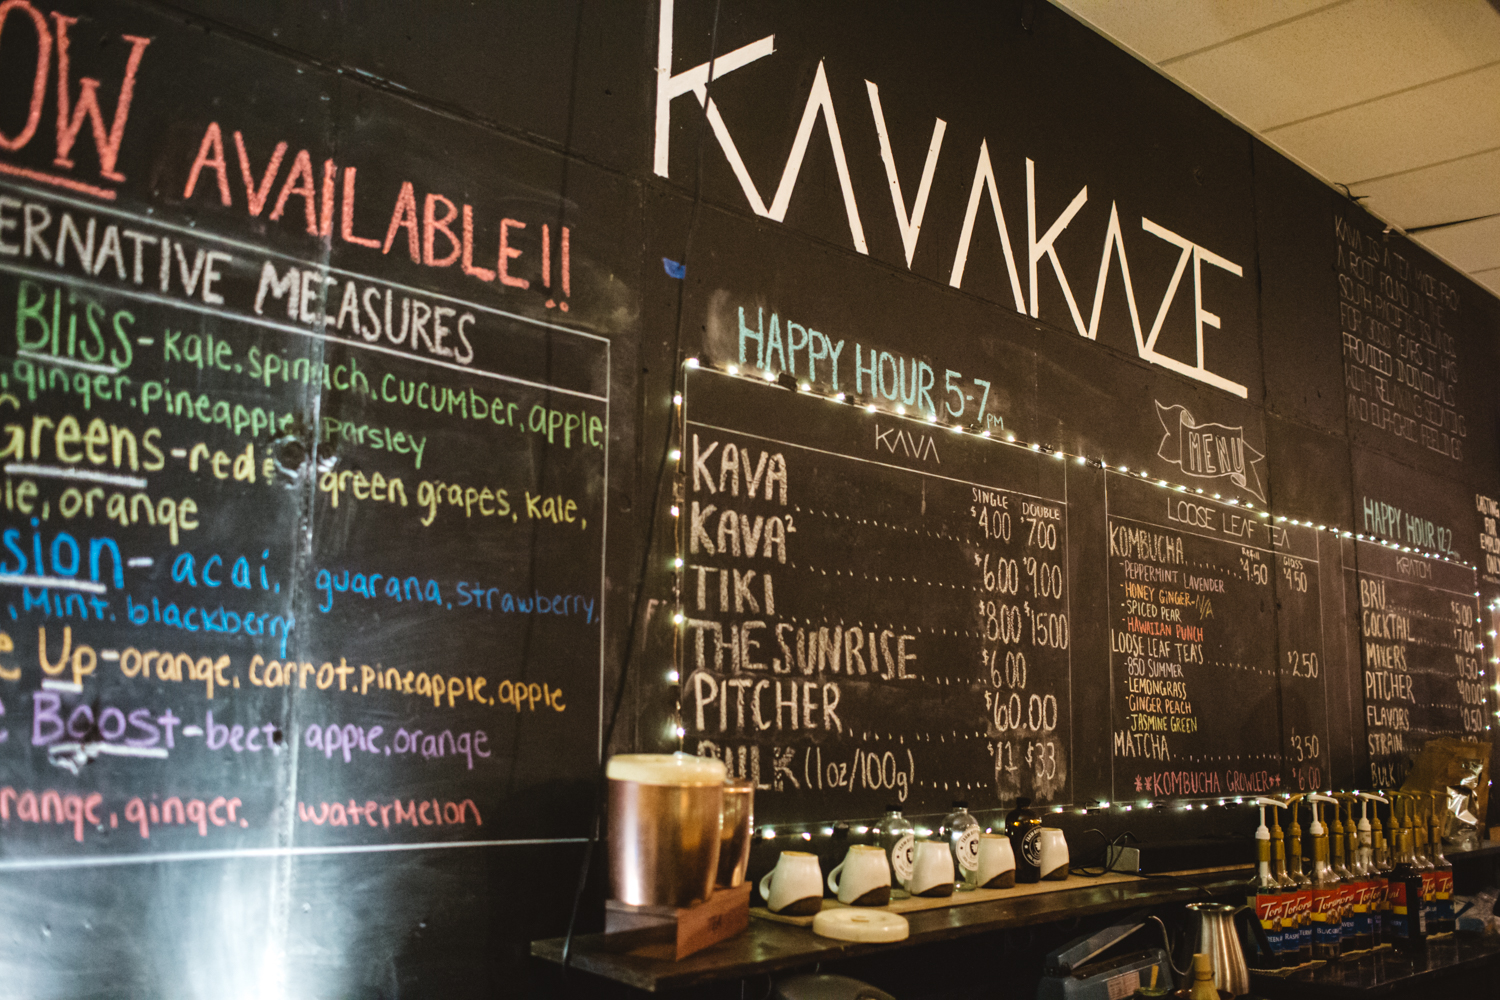 OW AVAILABLE!!
ERNATIVE MEASURES
Bliss- kale, spinach, cucumber, apple,
, ginger, pineapple, parsley
Greens-red & green grapes, kale,
ple, orange
sion- acai, guarana, strawberry,
, Mint, blackberry
e Up-orange, carrot, pineapple, apple
e Boost-beet, apple, orange
range, ginger, watermelon
KAVAKAZE
HAPPY HOUR 5-7pm
KAVA
SINGLE DOUBLE
KAVA $4.00 $7.00
KAVA² $6.00 $9.00
TIKI $8.00 $15.00
THE SUNRISE $6.00
PITCHER $60.00
BULK (1oz/100g) $11 $33
MENU
LOOSE LEAF TEA
GLASS
KOMBUCHA $4.50 $4.50
-PEPPERMINT LAVENDER
-HONEY GINGER-N/A
-SPICED PEAR
-HAWAIIAN PUNCH
LOOSE LEAF TEAS $2.50
-850 SUMMER
-LEMONGRASS
-GINGER PEACH
-JASMINE GREEN
MATCHA $3.50
**KOMBUCHA GROWLER** $6.00
KAVA IS A TEA MADE FROM
A ROOT FOUND IN THE
SOUTH PACIFIC ISLANDS
FOR 3000 YEARS IT HAS
PROVIDED INDIVIDUALS
WITH RELAXING, SEDATING
AND EUPHORIC FEELINGS
HAPPY HOUR 12-2
KRATOM
BRÜ $5.00
COCKTAIL $7.00
MIXERS
PITCHER
FLAVORS
STRAIN
BULK
Torani